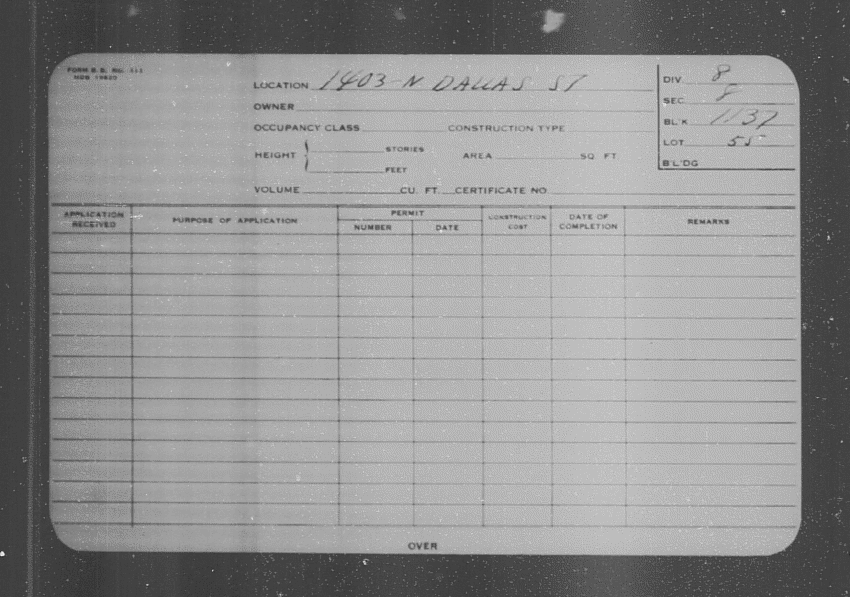 FORM B. S. NO. 111
LOCATION 1403 N DALLAS ST
OWNER
OCCUPANCY CLASS CONSTRUCTION TYPE
HEIGHT { STORIES AREA SQ FT
FEET
VOLUME CU. FT. CERTIFICATE NO
DIV. 8
SEC. 8
BL'K 1137
LOT 55
B'L'DG
APPLICATION RECEIVED PURPOSE OF APPLICATION PERMIT NUMBER DATE CONSTRUCTION COST DATE OF COMPLETION REMARKS
OVER